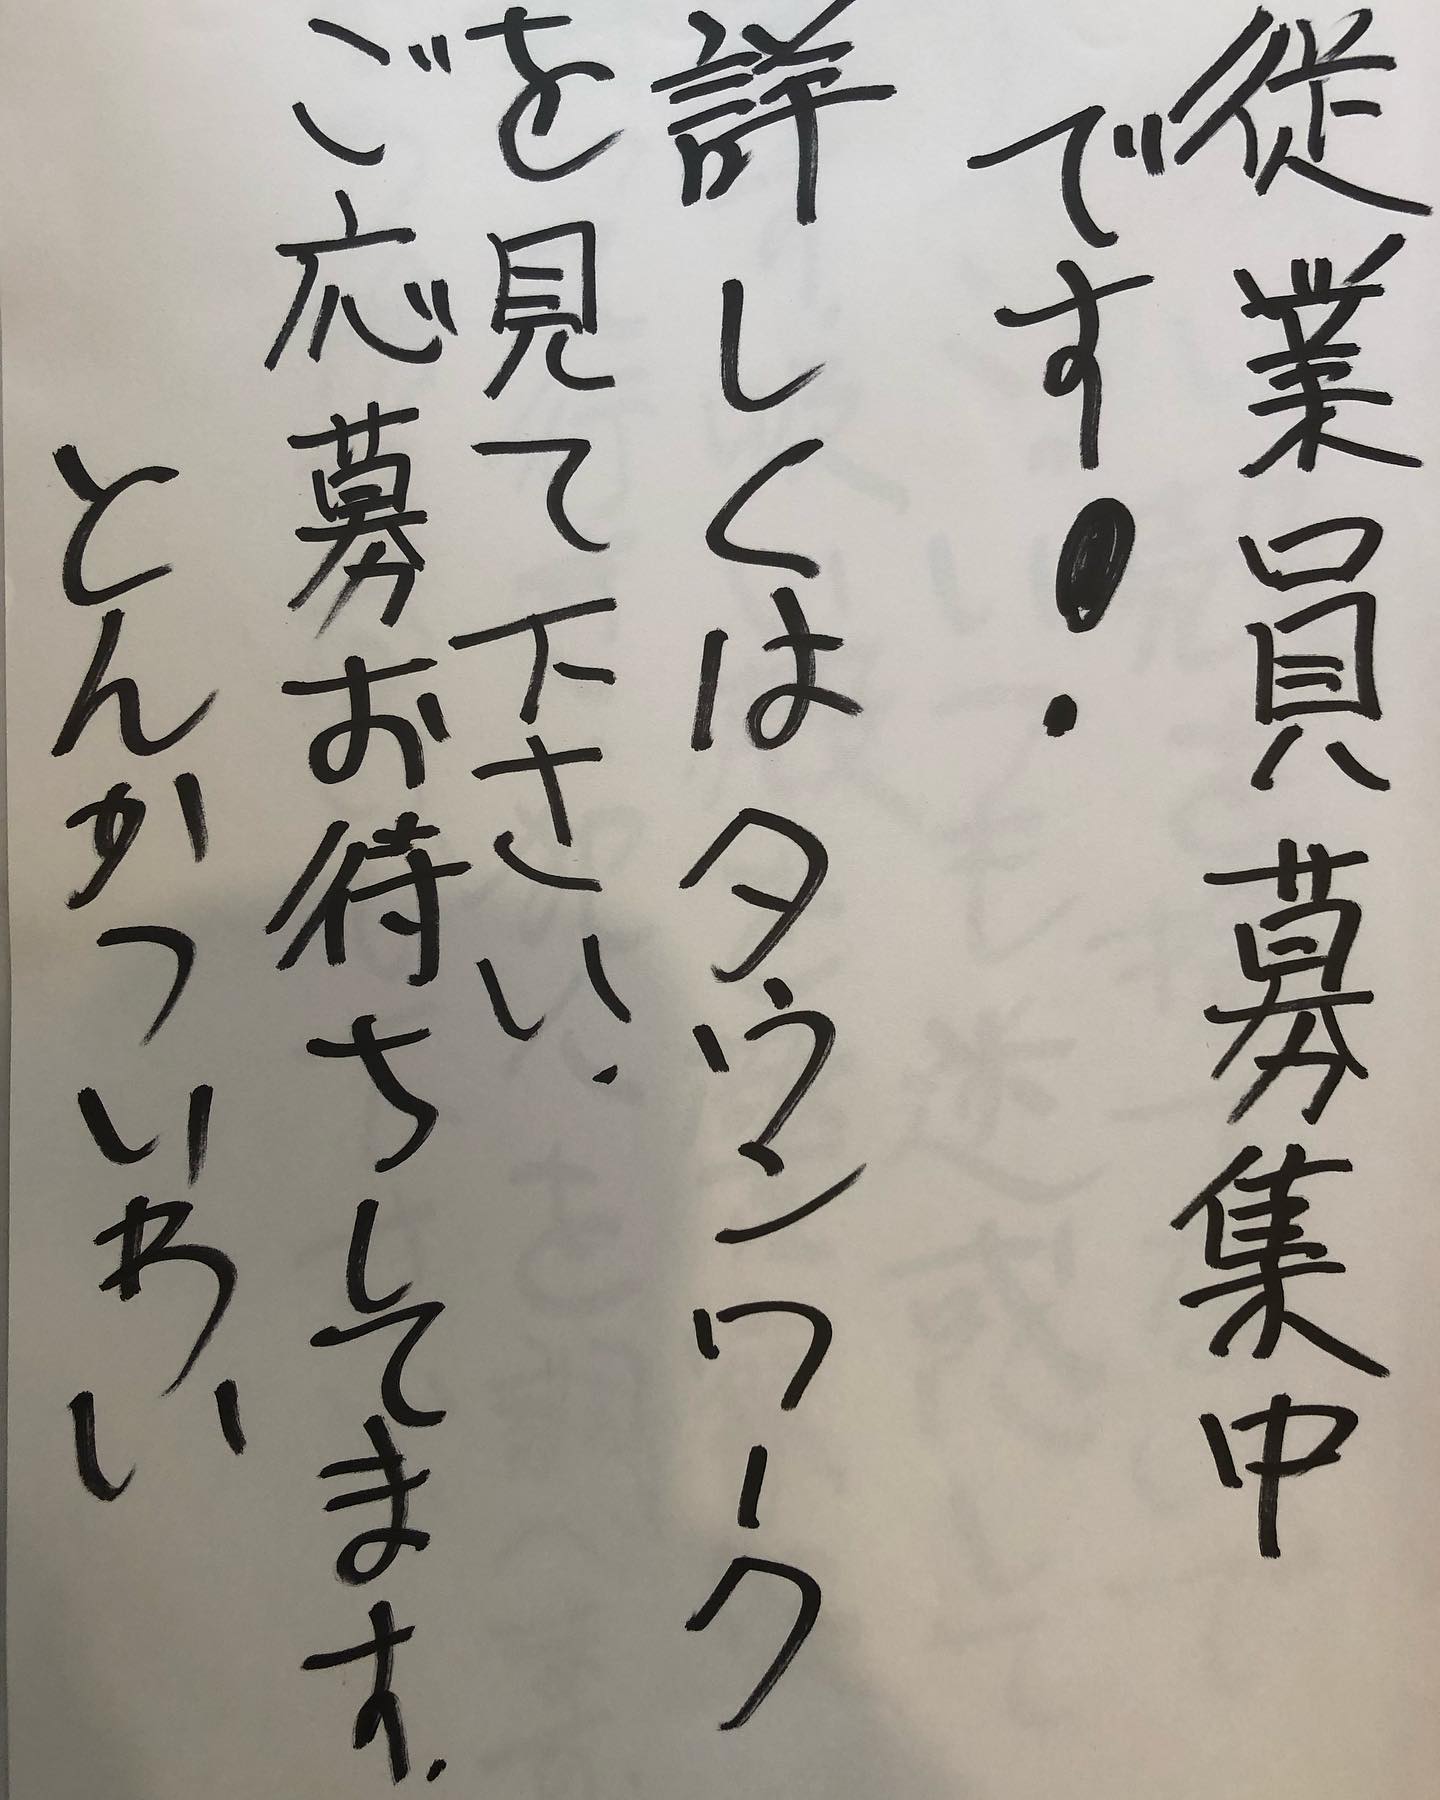 従業員募集中
です!
詳しくはタウンワーク
を見て下さい.
ご応募お待ちしてます.
とんかついわい